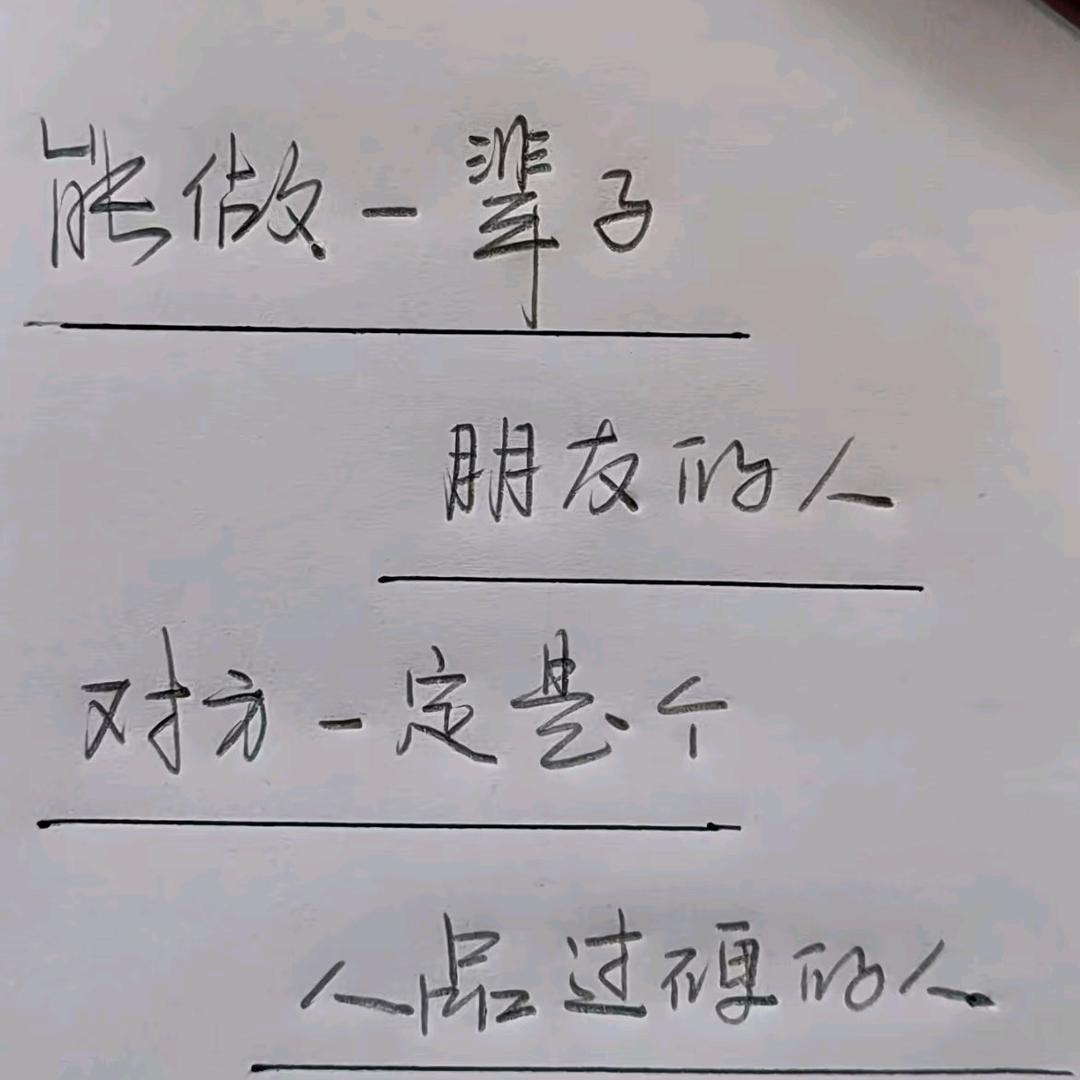 能做一辈子
朋友的人
对方一定是个
人品过硬的人